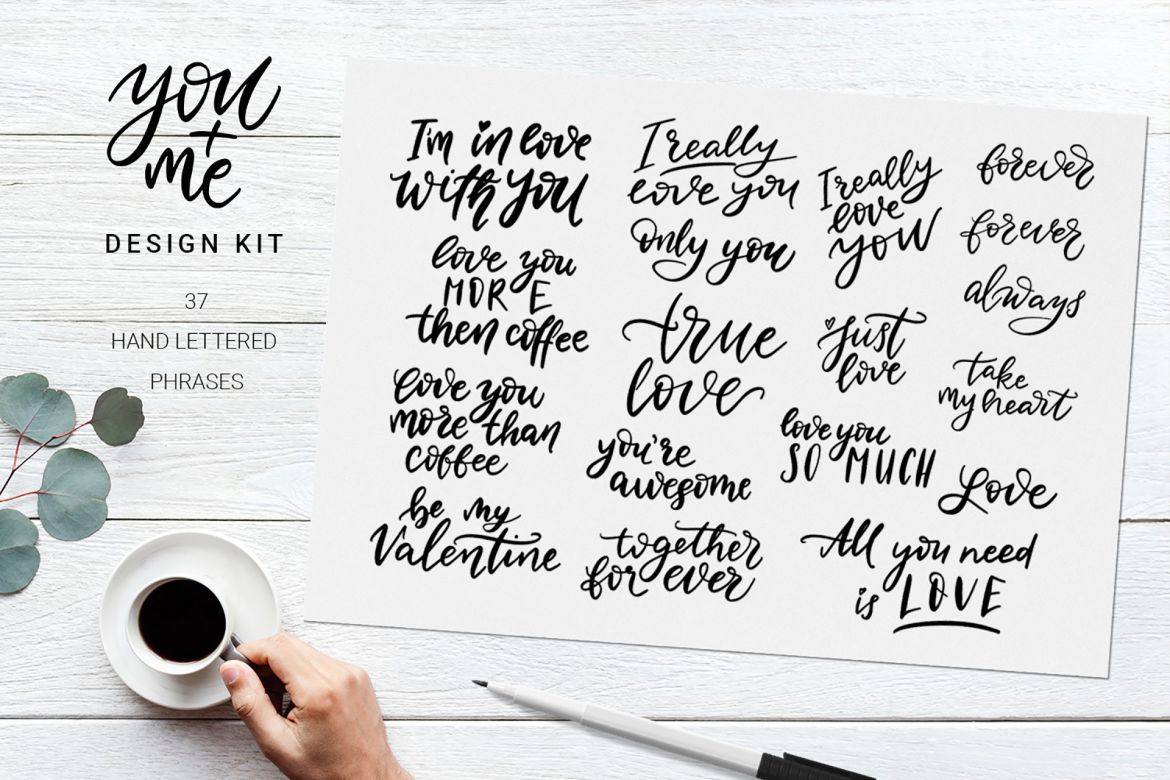 you
+
me
DESIGN KIT
37
HAND LETTERED
PHRASES
I'm in love
with you
love you
MORE
then coffee
love you
more than
coffee
be my
Valentine
I really
love you
only you
true
love
you're
awesome
together
for ever
I really
love
you
just
love
love you
SO MUCH
All you need
is LOVE
forever
forever
always
take
my heart
Love